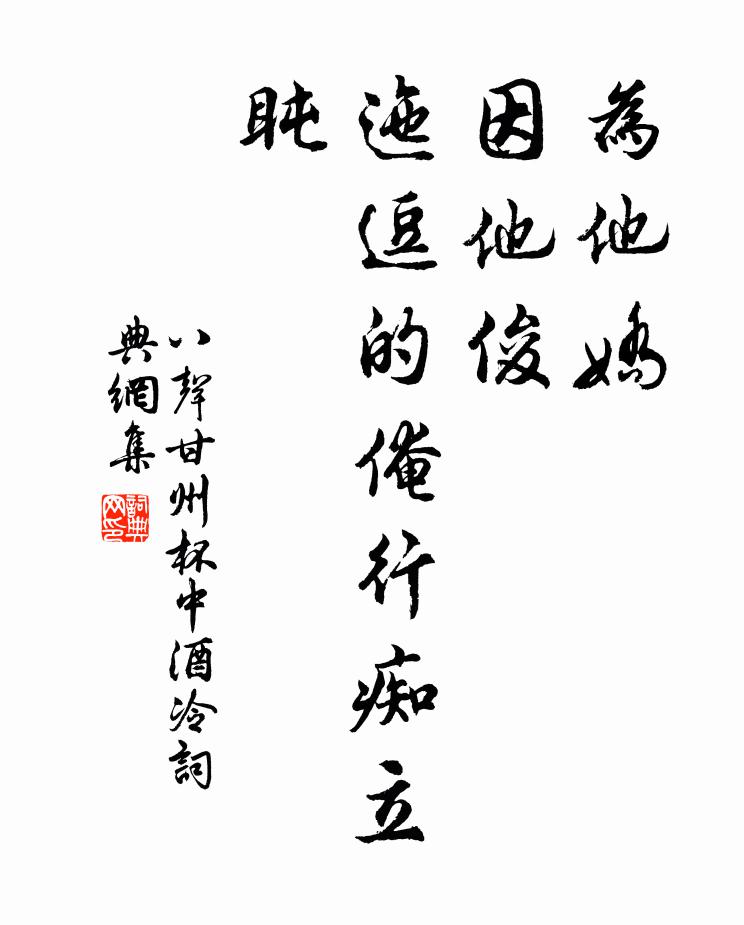 為他嬌
因他俊
迤逗的俺行痴立
盹
八聲甘州杯中酒冷詞
典網集
詞典
网印